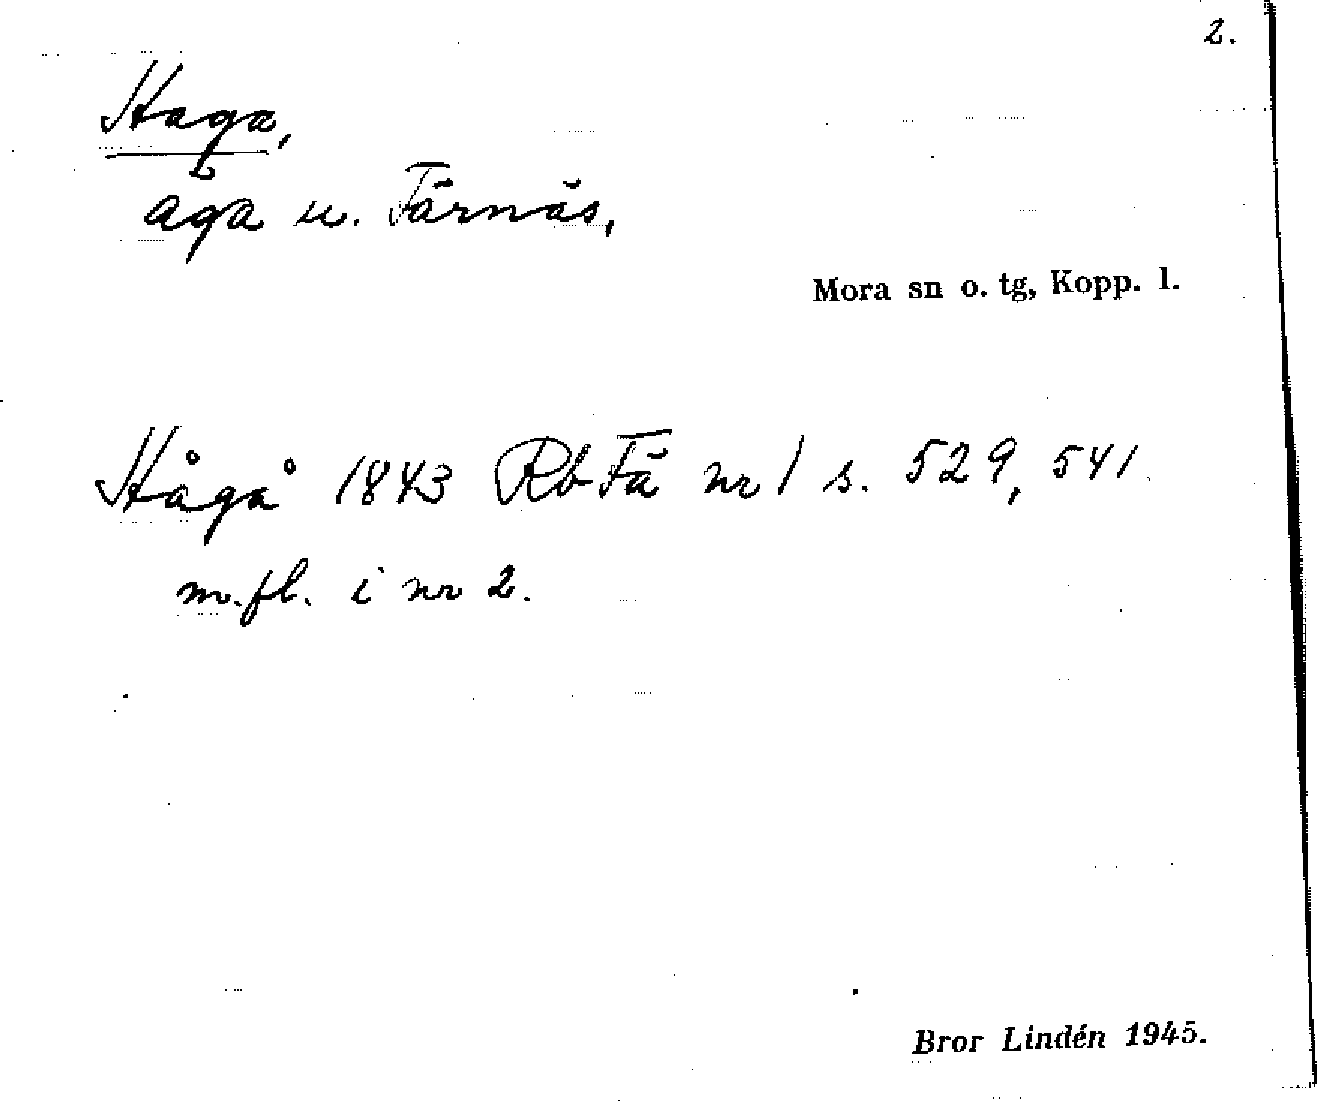 2.
Haga,
äga u. Färnäs,
Mora sn o. tg, Kopp. l.
Hågå 1843 Rb Fä nr 1 s. 529, 541.
m.fl. i nr 2.
Bror Lindén 1945.